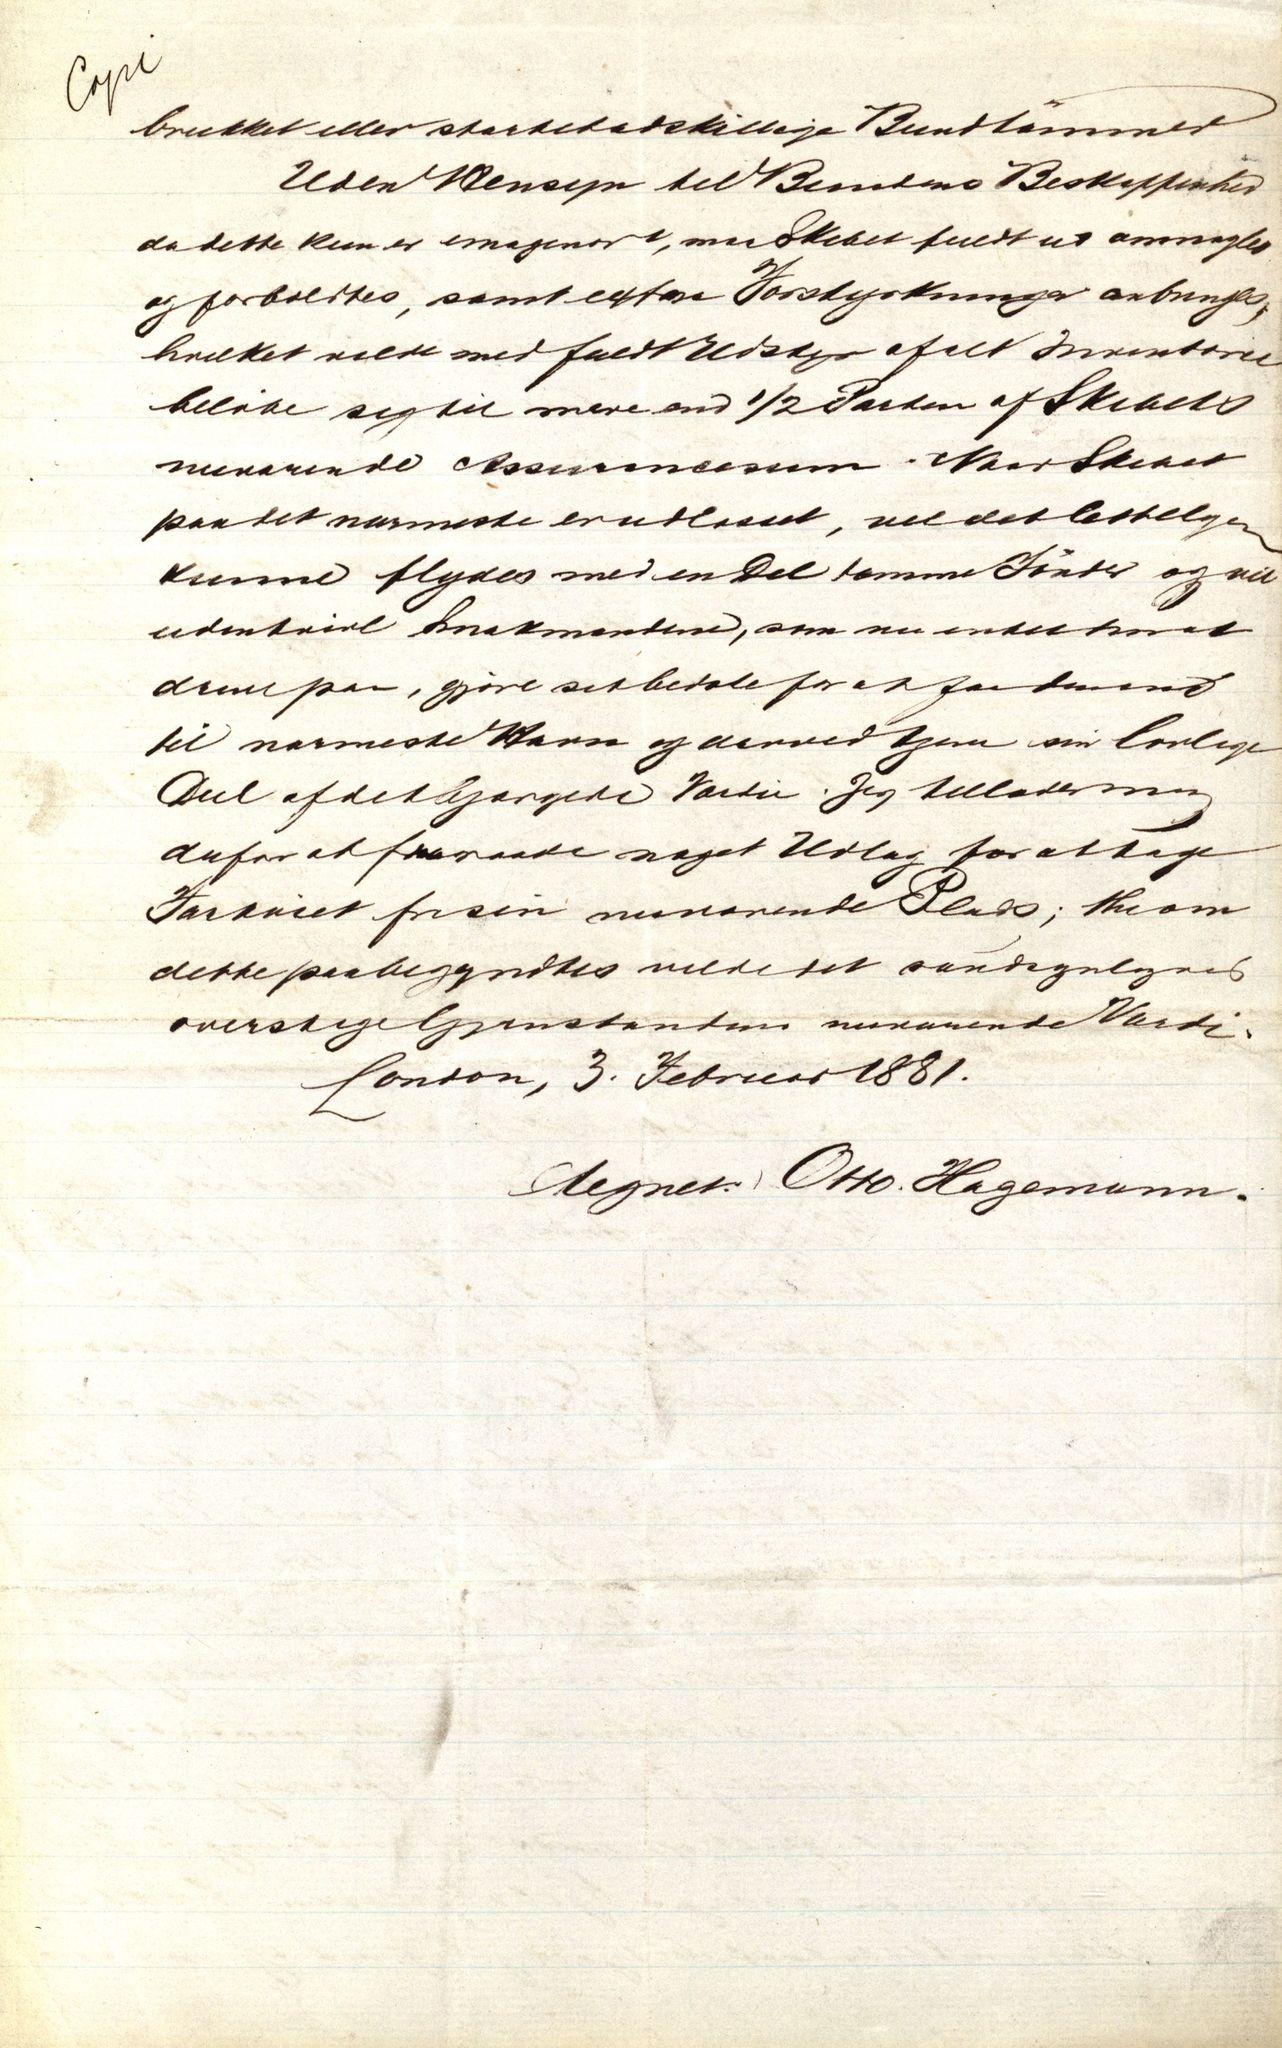 Copi
brukket eller starbetadskillige Bundtömmer
Uden Hensyn til Bundens Beskaffenhed
da dette kun er, maa Skibet fuldt ud omnagles
og forboldtes, samt extra Forstyrkninger anbringes,
hvilket vilde med fuldt Udstyr af alt Inventarie
belöbe sig til mere end 1/2 Parten af Skibets
nuvarende Assurancesum. Naar Skibet
paa det narmeste er udlosset, vil det letteligen
kunne flydes med en Del tomme Tönder og vil
udentvivl Smakmandene, som nu endel
, gjöre sit bedste for at faa det ind
til narmeste Havn og derved tjene sin lovlige
Deel af det Bjargede Vardie. Jeg tillader mig
derfor at fraraade noget Udlag for at tage
Fartöiet fra sin nuvarende Plads; thi om
dette paabegyndtes vilde det sandsynligvis
overstige Gjenstandens nuvarende Vardi.
London, 3. Februar 1881.
tegnet. Otto. Hagemann.